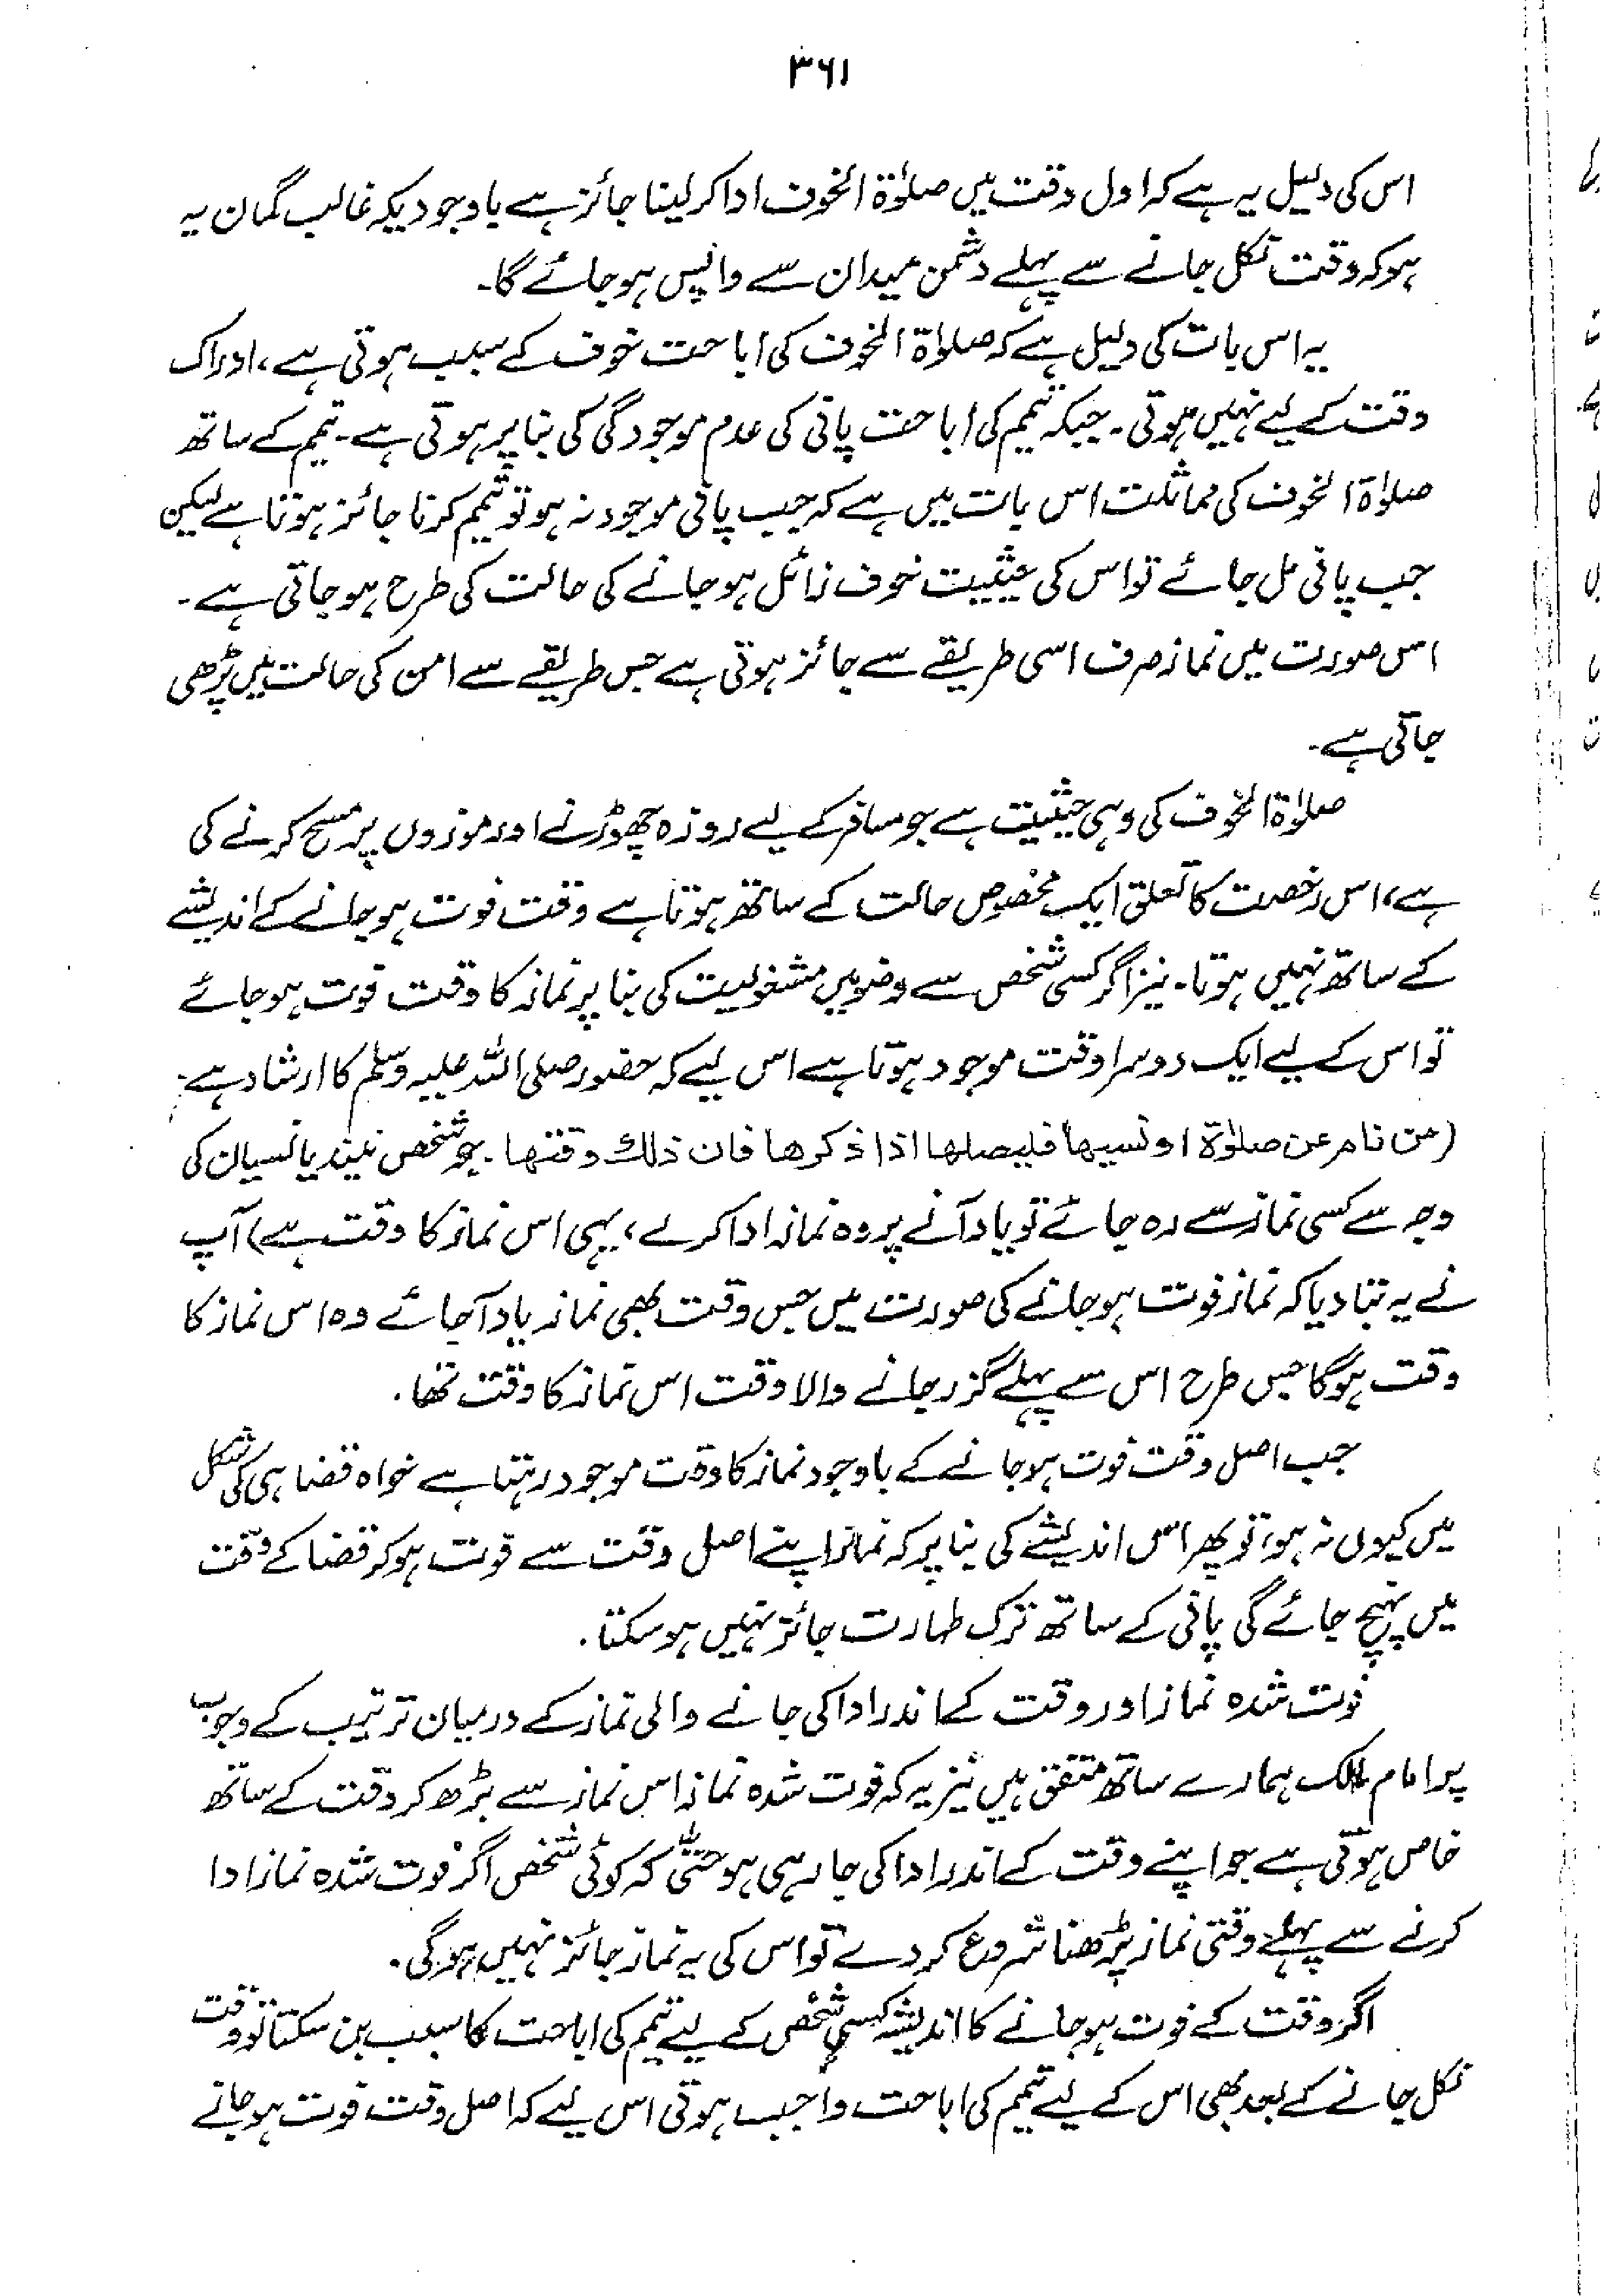 ۳۶۱
اس کی دلیل یہ ہے کہ اول وقت میں صلوٰۃ الخوف ادا کرلینا جائز ہے باوجودیکہ غالب گمان یہ
ہو کہ وقت نکل جانے سے پہلے دشمن میدان سے واپس ہوجائے گا۔
یہ اس بات کی دلیل ہے کہ صلوٰۃ الخوف کی اباحت خوف کے سبب ہوتی ہے، ادراک
وقت کے لیے نہیں ہوتی۔ جبکہ تیمم کی اباحت پانی کی عدم موجودگی کی بنا پر ہوتی ہے۔ تیمم کے ساتھ
صلوٰۃ الخوف کی مماثلت اس بات میں ہے کہ جب پانی موجود نہ ہو تو تیمم کرنا جائز ہوتا ہے لیکن
جب پانی مل جائے تو اس کی حیثیت خوف زائل ہوجانے کی حالت کی طرح ہوجاتی ہے۔
اس صورت میں نماز صرف اسی طریقے سے جائز ہوتی ہے جس طریقے سے امن کی حالت میں پڑھی
جاتی ہے۔
صلوٰۃ الخوف کی وہی حیثیت ہے جو مسافر کے لیے روزہ چھوڑنے اور موزوں پر مسح کرنے کی
ہے، اس رخصت کا تعلق ایک مخصوص حالت کے ساتھ ہوتا ہے وقت فوت ہوجانے کے اندیشے
کے ساتھ نہیں ہوتا۔ نیز اگر کسی شخص سے وضو میں مشغولیت کی بنا پر نماز کا وقت فوت ہوجائے
تو اس کے لیے ایک دوسرا وقت موجود ہوتا ہے اس لیے کہ حضور صلی اللہ علیہ وسلم کا ارشاد ہے:
(من نام عن صلوٰۃ او نسیھا فلیصلھا اذا ذکرھا فان ذلک وقتھا۔ جو شخص نیند یا نسیان کی
وجہ سے کسی نماز سے رہ جائے تو یاد آنے پر وہ نماز ادا کرلے، یہی اس نماز کا وقت ہے) آپ
نے یہ بتا دیا کہ نماز فوت ہوجانے کی صورت میں جس وقت بھی نماز یاد آجائے وہ اس نماز کا
وقت ہوگا جس طرح اس سے پہلے گزر جانے والا وقت اس نماز کا وقت تھا۔
جب اصل وقت فوت ہوجانے کے باوجود نماز کا وقت موجود رہتا ہے خواہ قضا ہی کی شکل
میں کیوں نہ ہو، تو پھر اس اندیشے کی بنا پر کہ نماز اپنے اصل وقت سے فوت ہوکر قضا کے وقت
میں پہنچ جائے گی پانی کے ساتھ ترک طہارت جائز نہیں ہوسکتا۔
فوت شدہ نماز اور وقت کے اندر ادا کی جانے والی نماز کے درمیان ترتیب کے وجوب
پر امام مالک ہمارے ساتھ متفق ہیں نیز یہ کہ فوت شدہ نماز اس نماز سے بڑھ کر وقت کے ساتھ
خاص ہوتی ہے جو اپنے وقت کے اندر ادا کی جارہی ہو حتیٰ کہ کوئی شخص اگر فوت شدہ نماز ادا
کرنے سے پہلے وقتی نماز پڑھنا شروع کردے تو اس کی یہ نماز جائز نہیں ہوگی۔
اگر وقت کے فوت ہوجانے کا اندیشہ کسی شخص کے لیے تیمم کی اباحت کا سبب بن سکتا تو وقت
نکل جانے کے بعد بھی اس کے لیے تیمم کی اباحت واجب ہوتی اس لیے کہ اصل وقت فوت ہوجانے